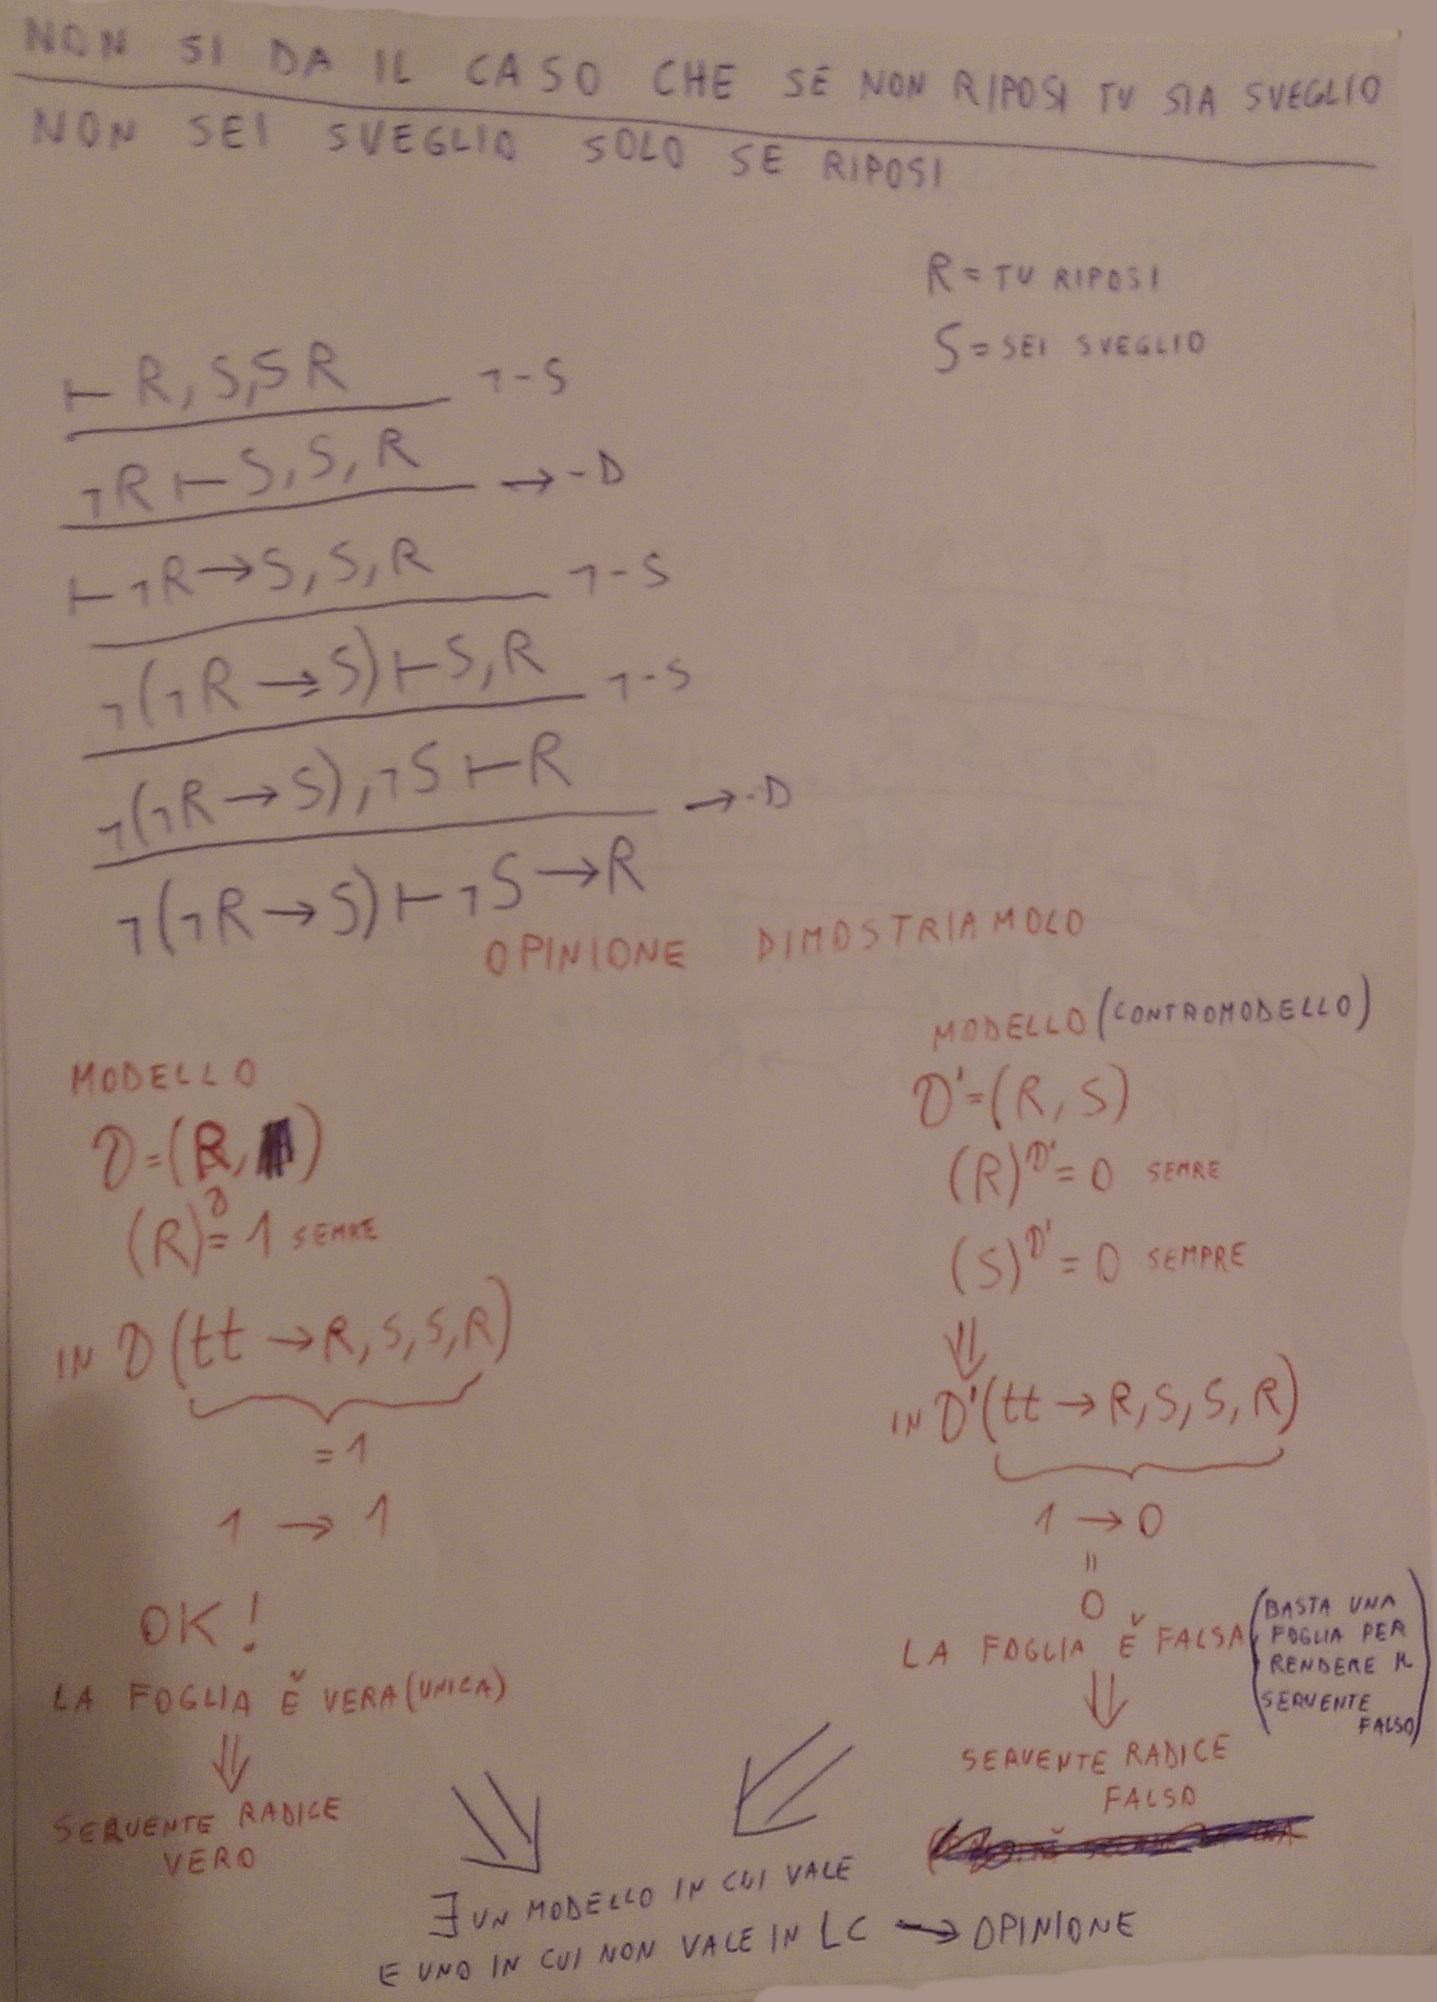 NON SI DA IL CASO CHE SE NON RIPOSI TU SIA SVEGLIO
NON SEI SVEGLIO SOLO SE RIPOSI
R = TU RIPOSI
S = SEI SVEGLIO
⊢ R, S, S R ¬-S
¬R ⊢ S, S, R →-D
⊢ ¬R → S, S, R ¬-S
¬(¬R → S) ⊢ S, R ¬-S
¬(¬R → S), ¬S ⊢ R →-D
¬(¬R → S) ⊢ ¬S → R
OPINIONE DIMOSTRIAMOLO
MODELLO
D = (R, )
(R)^D = 1 SEMRE
IN D (tt → R, S, S, R)
= 1
1 → 1
OK!
LA FOGLIA Ě VERA (UNICA)
⇓
SEQUENTE RADICE
VERO
MODELLO (CONTROMODELLO)
D' = (R, S)
(R)^D' = 0 SEMRE
(S)^D' = 0 SEMPRE
⇓
IN D' (tt → R, S, S, R)
1 → 0
=
0
LA FOGLIA Ě FALSA
(BASTA UNA
FOGLIA PER
RENDERE IL
SEQUENTE
FALSO)
⇓
SEQUENTE RADICE
FALSO
∃ UN MODELLO IN CUI VALE
E UNO IN CUI NON VALE IN LC → OPINIONE